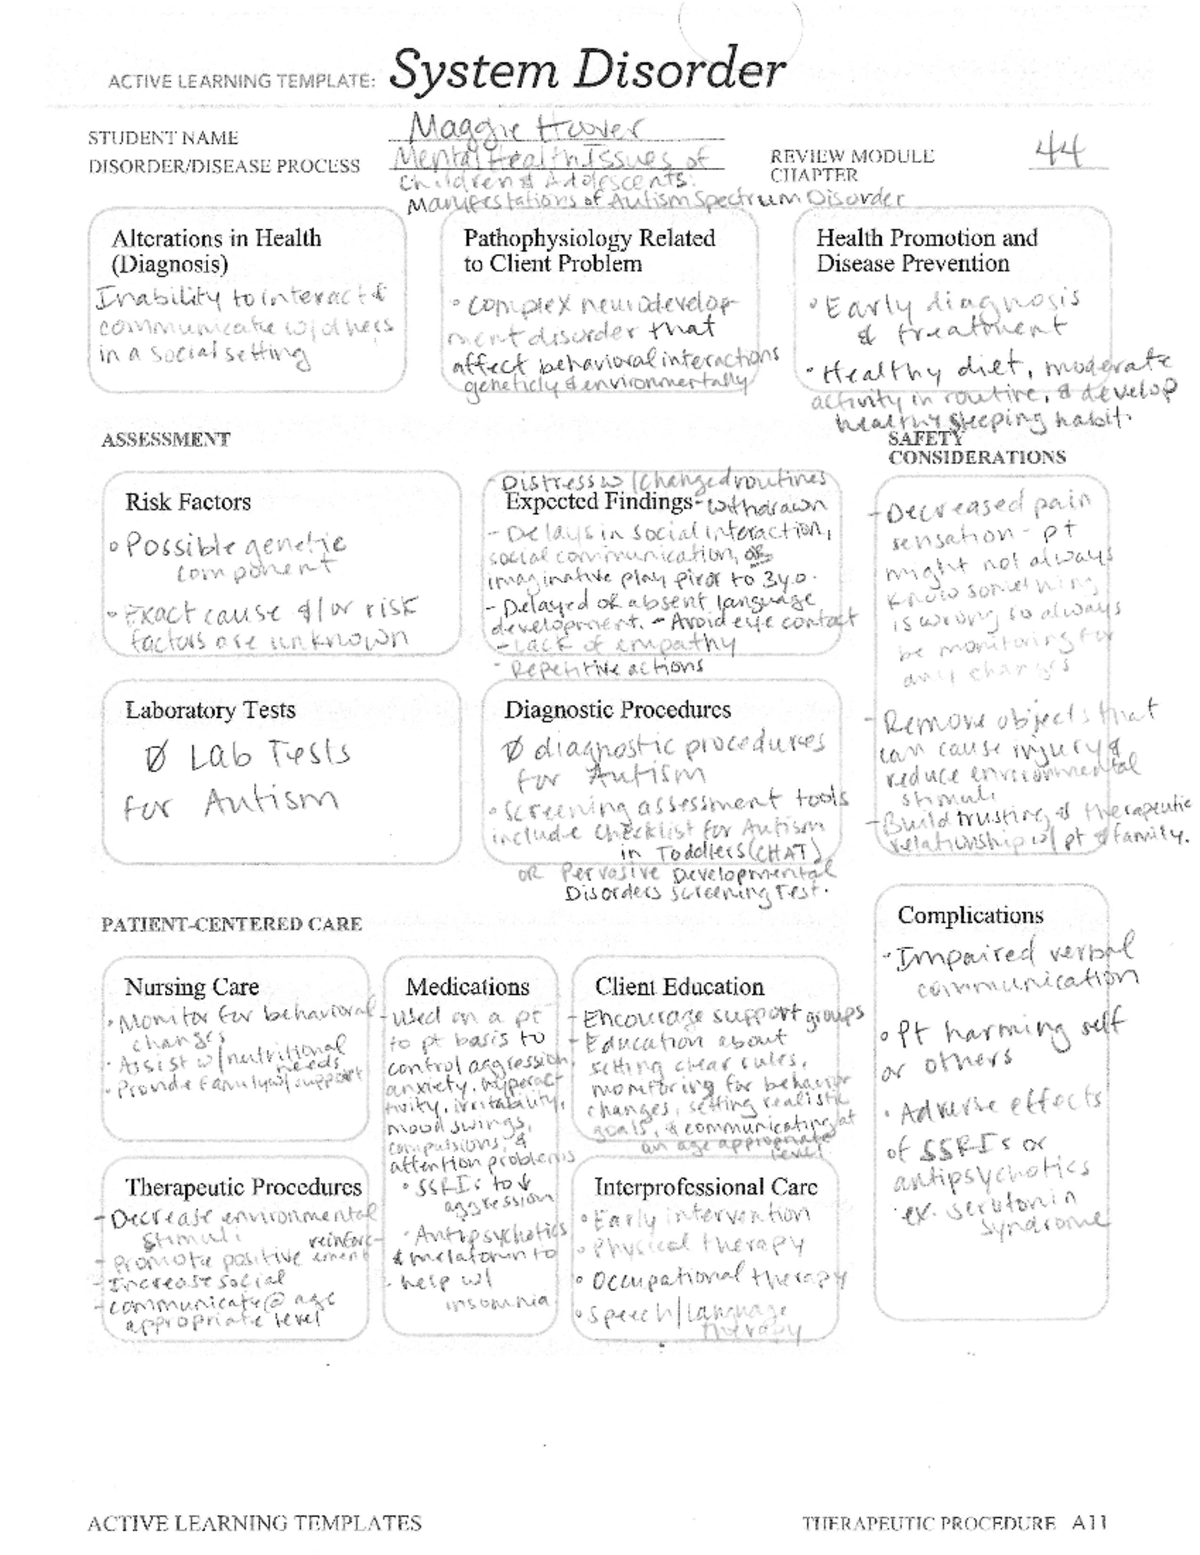 ACTIVE LEARNING TEMPLATE: System Disorder
STUDENT NAME Maggie Hoover
DISORDER/DISEASE PROCESS Mental Health Issues of
Children & Adolescents:
Manifestations of Autism Spectrum Disorder
REVIEW MODULE
CHAPTER 44
Alterations in Health
(Diagnosis)
Inability to interact &
communicate w/ others
in a social setting
Pathophysiology Related
to Client Problem
• complex neurodevelop-
ment disorder that
affect behavioral interactions
geneticly & environmentally
Health Promotion and
Disease Prevention
• Early diagnosis
& treatment
• Healthy diet, moderate
activity in routine, & develop
healthy sleeping habit.
ASSESSMENT
SAFETY
CONSIDERATIONS
Risk Factors
• Possible genetic
component
• Exact cause &/or risk
factors are unknown
- Distress w/ changed routines
Expected Findings - withdrawn
- Delays in social interaction,
social communication, or
imaginative play piror to 3 y.o.
- Delayed or absent language
development. - Avoid eye contact
- Lack of empathy
- Repetitive actions
- Decreased pain
sensation - pt
might not always
know something
is wrong so always
be monitoring for
any changes
- Remove objects that
can cause injury &
reduce environmental
stimuli
- Build trusting & therapeutic
relationship w/ pt & family.
Laboratory Tests
Ø Lab Tests
for Autism
Diagnostic Procedures
Ø diagnostic procedures
for Autism
• Screening assessment tools
include Checklist for Autism
in Toddlers (CHAT)
OR Pervasive Developmental
Disorders Screening Test.
PATIENT-CENTERED CARE
Nursing Care
• Monitor for behavioral
changes
• Assist w/ nutritional
needs
• Provide family w/ support
Medications
- used on a pt
to pt basis to
control aggression,
anxiety, hyperact-
ivity, irritability,
mood swings,
compulsions, &
attention problems
• SSRIs to ↓
aggression
• Antipsychotics
& melatonin to
help w/
insomnia
Client Education
- Encourage support groups
- Education about
setting clear rules,
monitoring for behavior
changes, setting realistic
goals, & communicating at
an age appropriate
level
Complications
• Impaired verbal
communication
• Pt harming self
or others
• Adverse effects
of SSRIs or
antipsychotics
ex. serotonin
syndrome
Therapeutic Procedures
- Decrease environmental
stimuli
- Promote positive reinforc-
ement
- Increase social
- communicate @ age
appropriate level
Interprofessional Care
• Early intervention
• Physical therapy
• Occupational therapy
• Speech/language
therapy
ACTIVE LEARNING TEMPLATES
THERAPEUTIC PROCEDURE A11